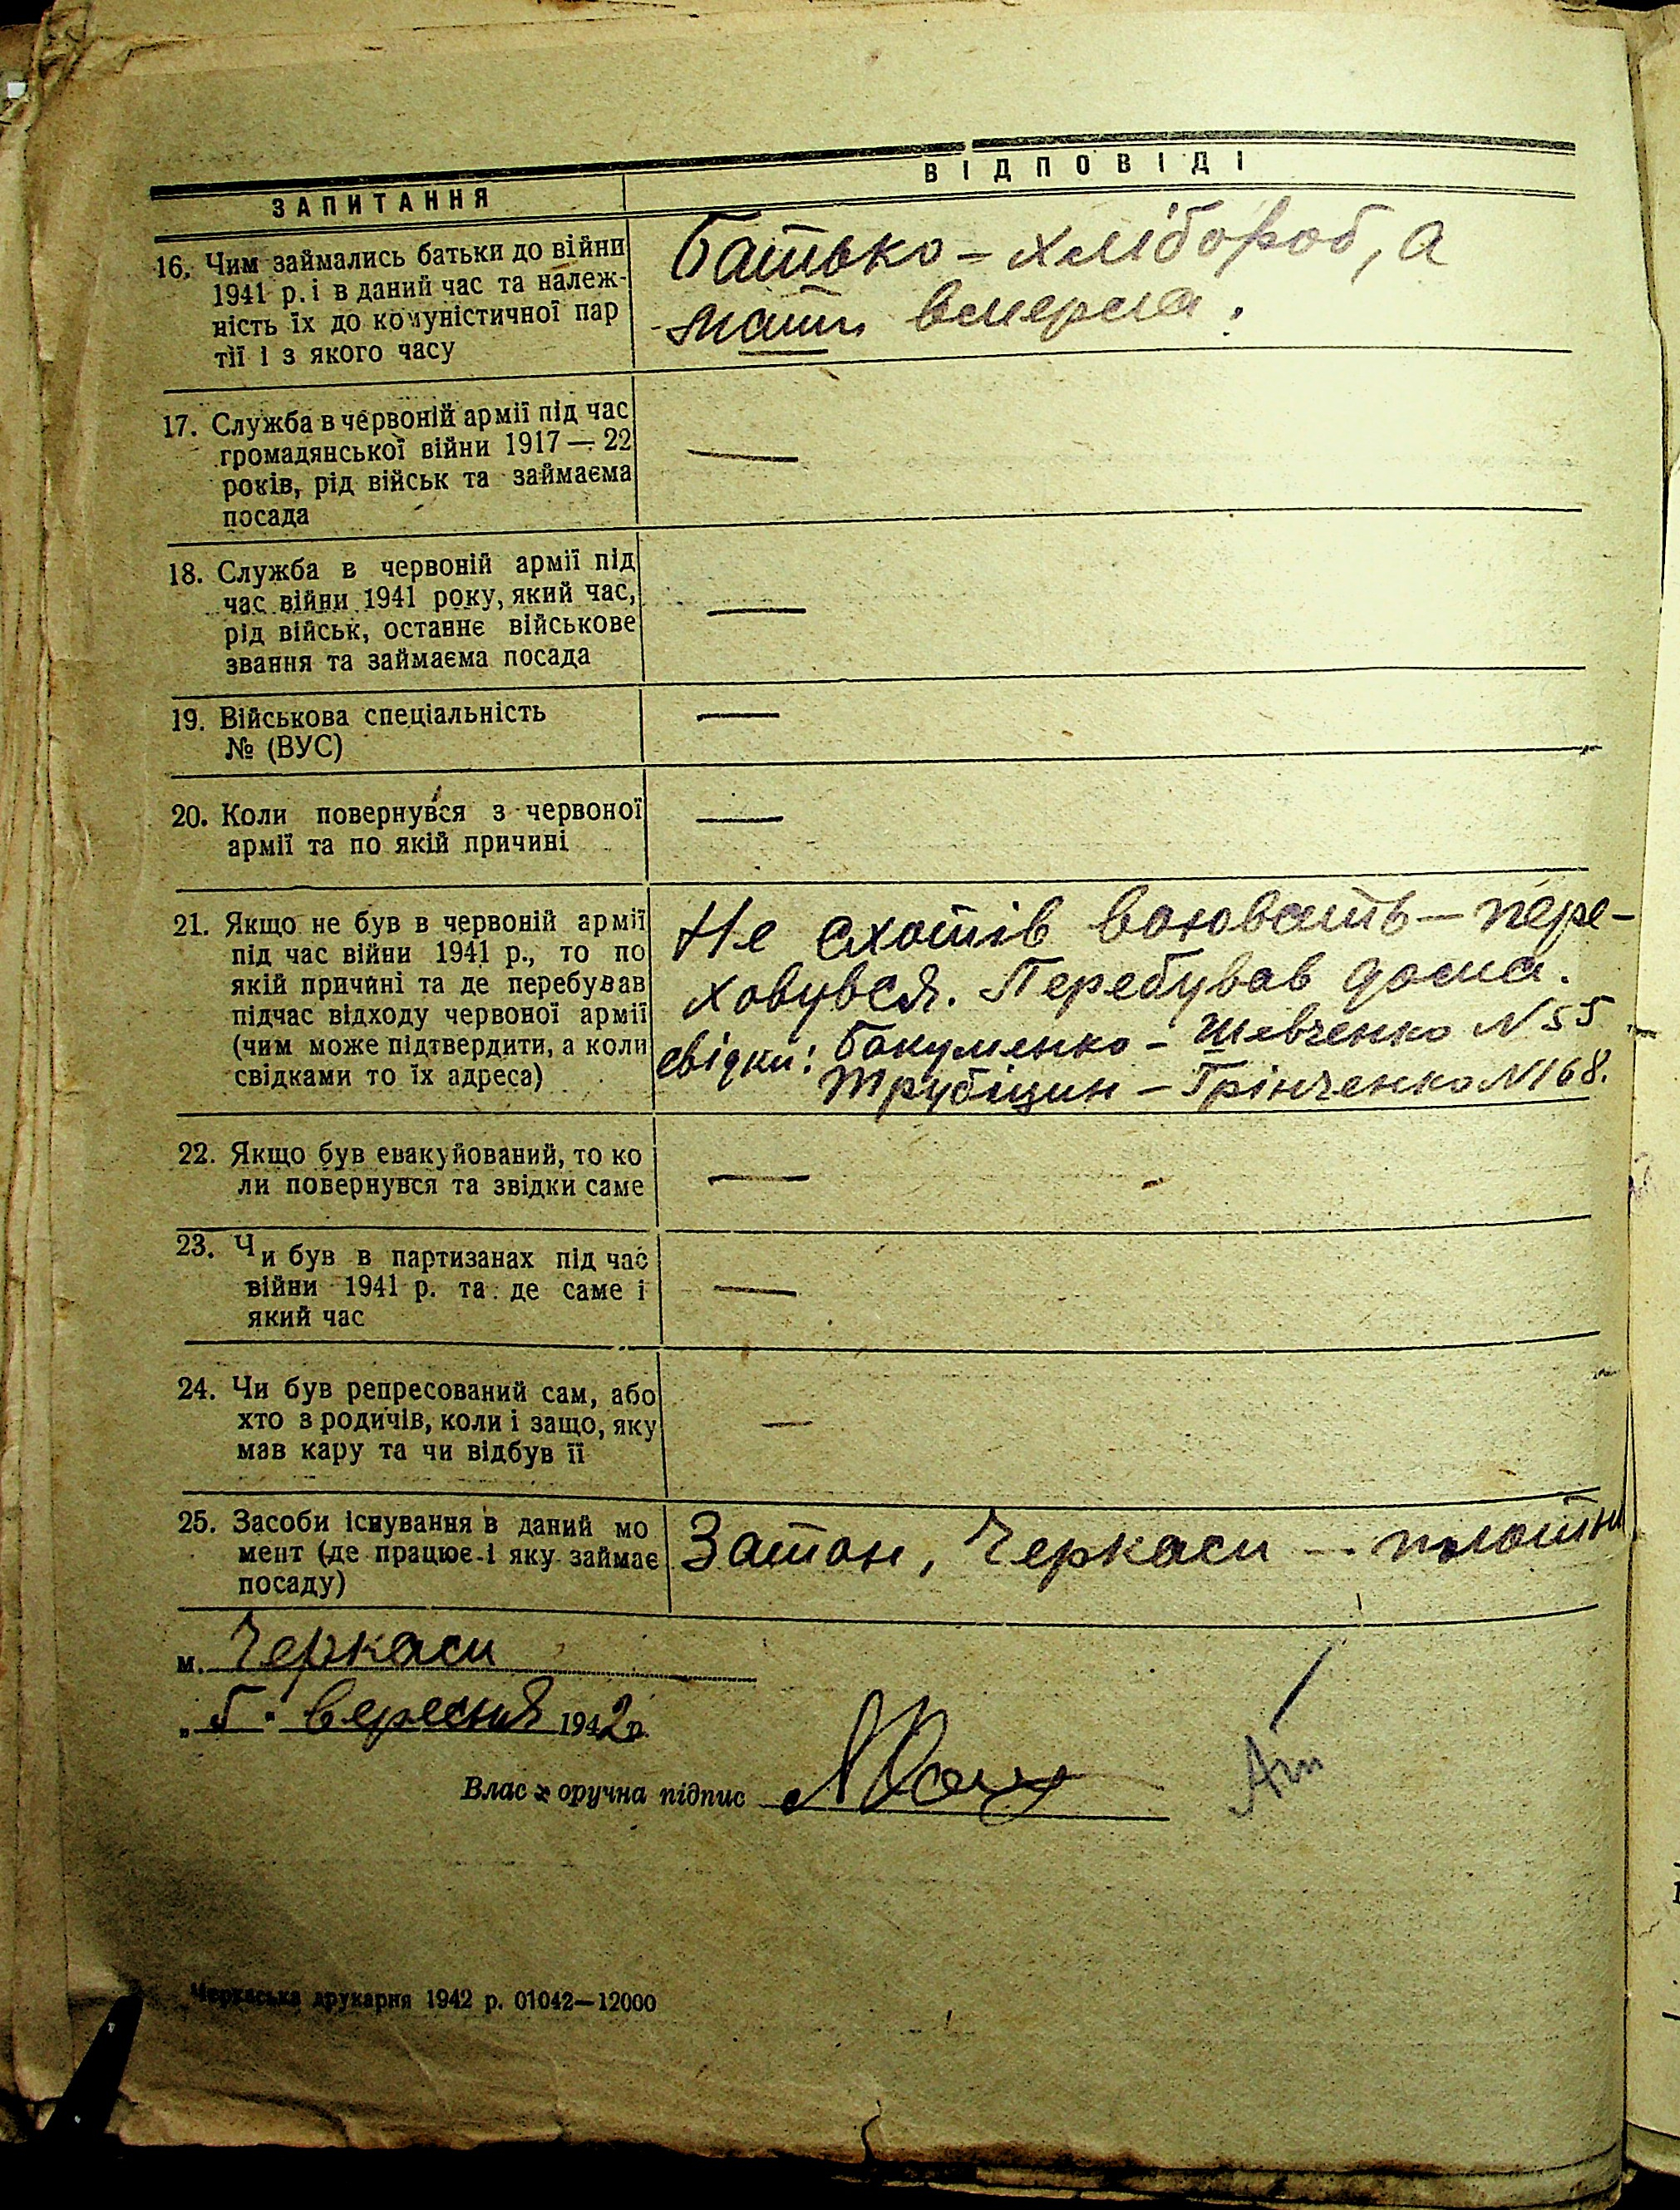 ЗАПИТАННЯ
ВІДПОВІДІ
16. Чим займались батьки до війни
1941 р. і в даний час та належ-
ність їх до комуністичної пар
тії і з якого часу
Батько – хлібороб, а
мати вмерла.
17. Служба в червоній армії під час
громадянської війни 1917 — 22
років, рід військ та займаєма
посада
—
18. Служба в червоній армії під
час війни 1941 року, який час,
рід військ, останнє військове
звання та займаєма посада
—
19. Військова спеціальність
№ (ВУС)
—
20. Коли повернувся з червоної
армії та по якій причині
—
21. Якщо не був в червоній армії
під час війни 1941 р., то по
якій причині та де перебував
підчас відходу червоної армії
(чим може підтвердити, а коли
свідками то їх адреса)
Не схотів воювать – пере-
ховувся. Перебував дома.
свідки: Бакуменко – Шевченко N 55
Трубіцин – Грінченко N 168.
22. Якщо був евакуйований, то ко
ли повернувся та звідки саме
—
23. Чи був в партизанах під час
війни 1941 р. та де саме і
який час
—
24. Чи був репресований сам, або
хто з родичів, коли і защо, яку
мав кару та чи відбув її
—
25. Засоби існування в даний мо
мент (де працює і яку займає
посаду)
Затон, Черкаси – плотни
м. Черкаси
„ 5 " вересня 1942 р.
Власноручна підпис
Черкаська друкарня 1942 р. 01042—12000